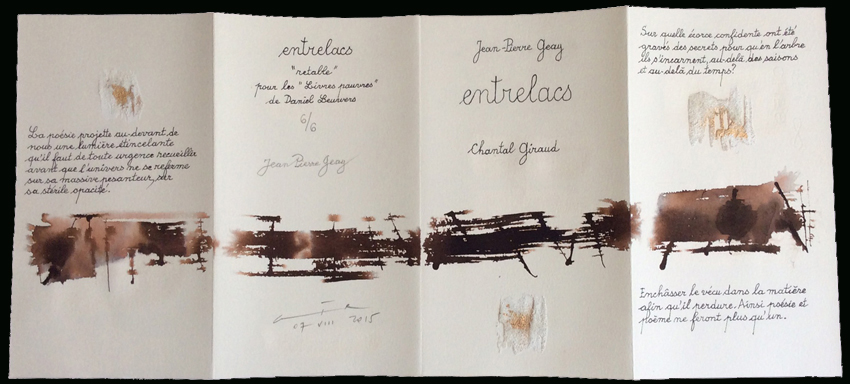 La poésie projette au-devant de
nous une lumière étincelante
qu'il faut de toute urgence recueillir
avant que l'univers ne se referme
sur sa massive pesanteur, sur
sa stérile opacité.
entrelacs
"retable"
pour les "Livres pauvres"
de Daniel Leuwers
6/6
Jean-Pierre Geay
07 VIII 2015
Jean-Pierre Geay
entrelacs
Chantal Giraud
Sur quelle écorce confidente ont été
gravés des secrets pour qu'en l'arbre
ils s'incarnent, au-delà des saisons
et au-delà du temps?
Enchâsser le vécu dans la matière
afin qu'il perdure. Ainsi poésie et
poème ne feront plus qu'un.